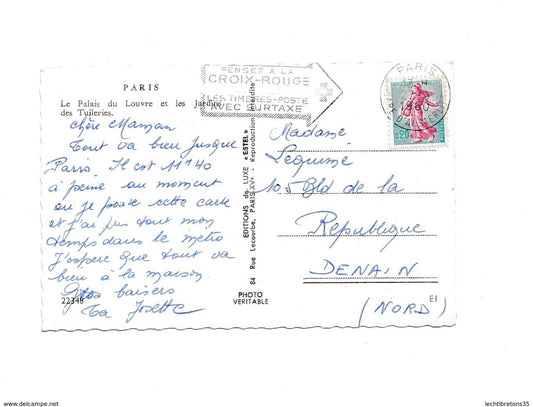 PENSEZ A LA
CROIX-ROUGE
LES TIMBRES-POSTE
AVEC SURTAXE
PARIS
1960
0,20
PARIS
Le Palais du Louvre et les Jardins
des Tuileries.
chère Maman
Tout va bien jusque
Paris. Il est 11h40
à peine au moment
ou je poste cette carte
et j'ai pas tout mon
temps dans le métro
J'espère que tout va
bien à la maison.
Gros baisers
Ta Josette
22348
EDITIONS de LUXE "ESTEL"
84 Rue Lecourbe, PARIS-XVe - Reproduction interdite
PHOTO
VERITABLE
Madame
Lequime
105 Bld de la
Republique
DENAIN
(NORD)
EI
www.delcampe.net
lechtibretons35